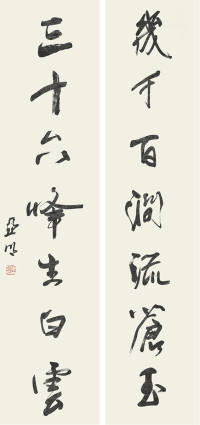 幾千百澗流蒼玉
三十六峰生白雲
亞明